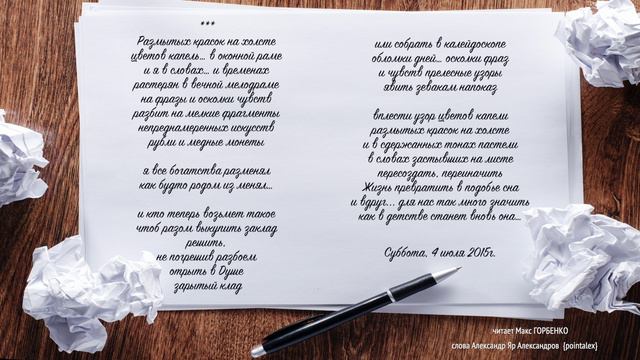 ***
Размытых красок на холсте
цветов капель... в оконной раме
и я в словах... и временах
растерян в вечной мелодраме
на фразы и осколки чувств
разбит на мелкие фрагменты
непреднамеренных искусств
рубли и медные монеты

я все богатства разменял
как будто родом из менял...

и кто теперь возьмет такое
чтоб разом выкупить заклад
решить,
не погрешив разбоем
отрыть в Душе
зарытый клад

или собрать в калейдоскопе
обломки дней... осколки фраз
и чувств прелесные узоры
явить зевакам напоказ

вплести узор цветов капели
размытых красок на холсте
и в сдержанных тонах пастели
в словах застывших на листе
пересоздать, переиначить
Жизнь превратить в подобье сна
и вдруг... для нас так много значить
как в детстве станет вновь она...

Суббота, 4 июля 2015г.

читает Макс ГОРБЕНКО
слова Александр Яр Александров {pointalex}